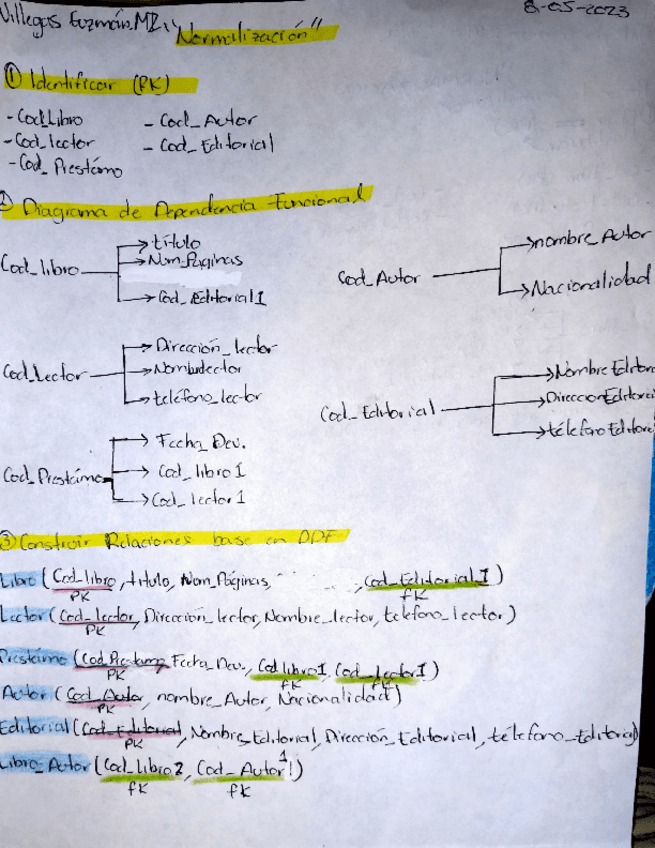 Villegas Guzmán.MZ, "Normalización" 8-05-2023
① Identificar (PK)
- Cod_Libro - Cod_Autor
- Cod_lector - Cod_Editorial
- Cod_Prestámo
② Diagrama de Dependencia Funcional
Cod_libro
título
Num_Páginas
Cod_Editorial1
Cod_Autor
nombre_Autor
Nacionalidad
Cod_Lector
Dirección_lector
Nombrelector
teléfono_lector
Cod_Editorial
Nombre Editor
DireccionEditorei
télefonoEditore
Cod_Prestámo
Fecha_Dev.
Cod_libro1
Cod_lector1
③ Construir Relaciones base en DDF
Libro (Cod_libro, titulo, Num_Páginas, , Cod_Editorial1)
PK fK
Lector (Cod_lector, Dirección_lector, Nombre_lector, teléfono_lector)
PK
Prestámo (Cod_Prestamo, Fecha_Dev., Cod_libro1, Cod_lector1)
PK fK fK
Autor (Cod_Autor, nombre_Autor, Nacionalidad)
PK
Editorial (Cod_Editorial, Nombre_Editorial, Dirección_Editorial, teléfono_Editorial)
PK
Libro_Autor (Cod_libro2, Cod_Autor1)
fK fK